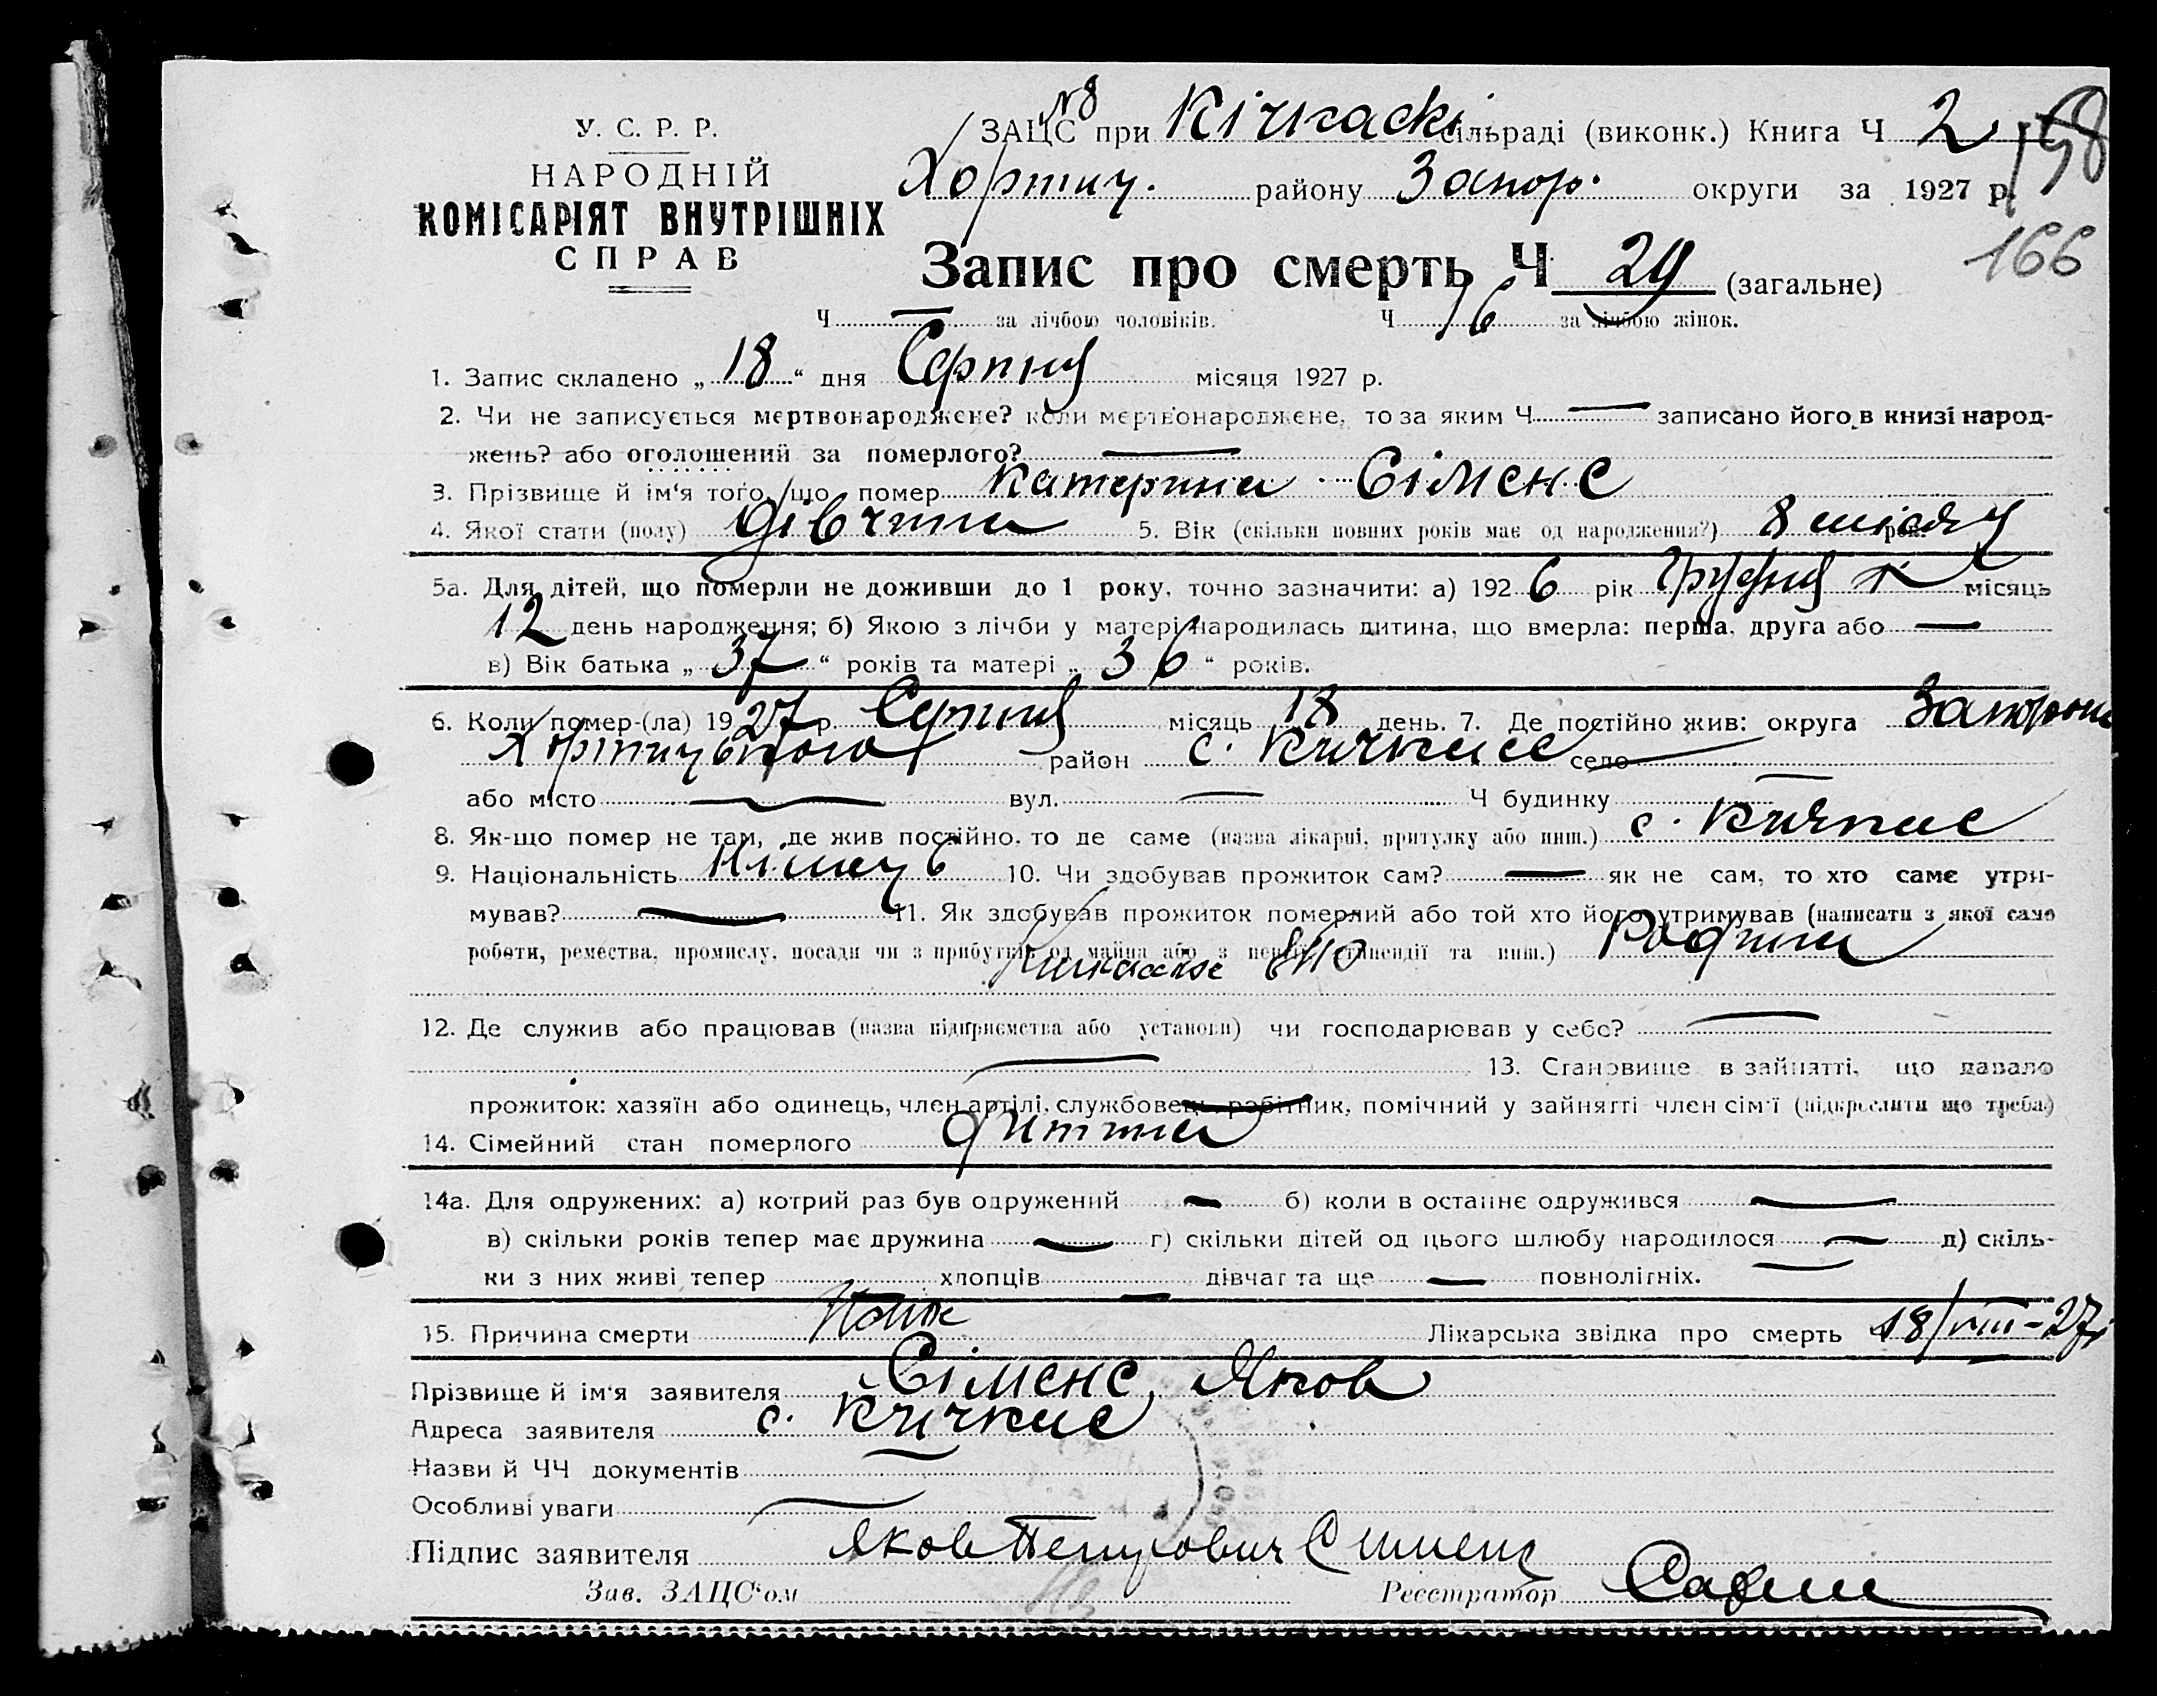 У. С. Р. Р.
НАРОДНІЙ
КОМІСАРІЯТ ВНУТРІШНІХ
СПРАВ
N8
ЗАЦС при Кічкаскі сільраді (виконк.) Книга Ч 2 158
Хортиц. району Запор. округи за 1927 р.
166
Запис про смерть Ч 29 (загальне)
Ч — за лічбою чоловіків. Ч 16 за лічбою жінок.
1. Запис складено „ 18 “ дня Серпня місяця 1927 р.
2. Чи не записується мертвонароджене? коли мертвонароджене, то за яким Ч — записано його в книзі народ-
жень? або оголошений за померлого? —
3. Прізвище й ім'я того, що помер Катерина Сіменс
4. Якої стати (полу) Дівчина 5. Вік (скільки повних років має од народження?) 8 місяц рок.
5а. Для дітей, що померли не доживши до 1 року, точно зазначити: а) 192 6 рік Грудня місяць
12 день народження; б) Якою з лічби у матері народилась дитина, що вмерла: перша, друга або —
в) Вік батька „ 37 “ років та матері „ 36 “ років.
6. Коли помер-(ла) 19 27 р. Серпня місяць 18 день. 7. Де постійно жив: округа Запорож
Хортицького район с. Кичкас село
або місто — вул. — Ч будинку —
8. Як-що помер не там, де жив постійно, то де саме (назва лікарні, притулку або инш.) с. Кичкас
9. Національність Німец 10. Чи здобував прожиток сам? — як не сам, то хто саме утри-
мував? — 11. Як здобував прожиток померлий або той хто його утримував (написати з якої само
роботи, ремества, промислу, посади чи з прибутків од майна або з пенсії, стипендії та инш.) Родина
12. Де служив або працював (назва підприємства або установи) чи господарював у себе? —
— 13. Становище в зайнятті, що давало
прожиток: хазяїн або одинець, член артілі, службовець, робітник, помічний у зайнятті член сім'ї (підкреслити що треба)
14. Сімейний стан померлого Дитина
14а. Для одружених: а) котрий раз був одружений — б) коли в останнє одружився —
в) скільки років тепер має дружина — г) скільки дітей од цього шлюбу народилося — д) скіль-
ки з них живі тепер — хлопців — дівчат та ще — повнолітніх.
15. Причина смерти Понос Лікарська звідка про смерть 18/VIII-27
Прізвище й ім'я заявителя Сіменс Яков
Адреса заявителя с. Кичкас
Назви й ЧЧ документів —
Особливі уваги —
Підпис заявителя Яков Петрович Сименс
Зав. ЗАЦС'ом Реєстратор